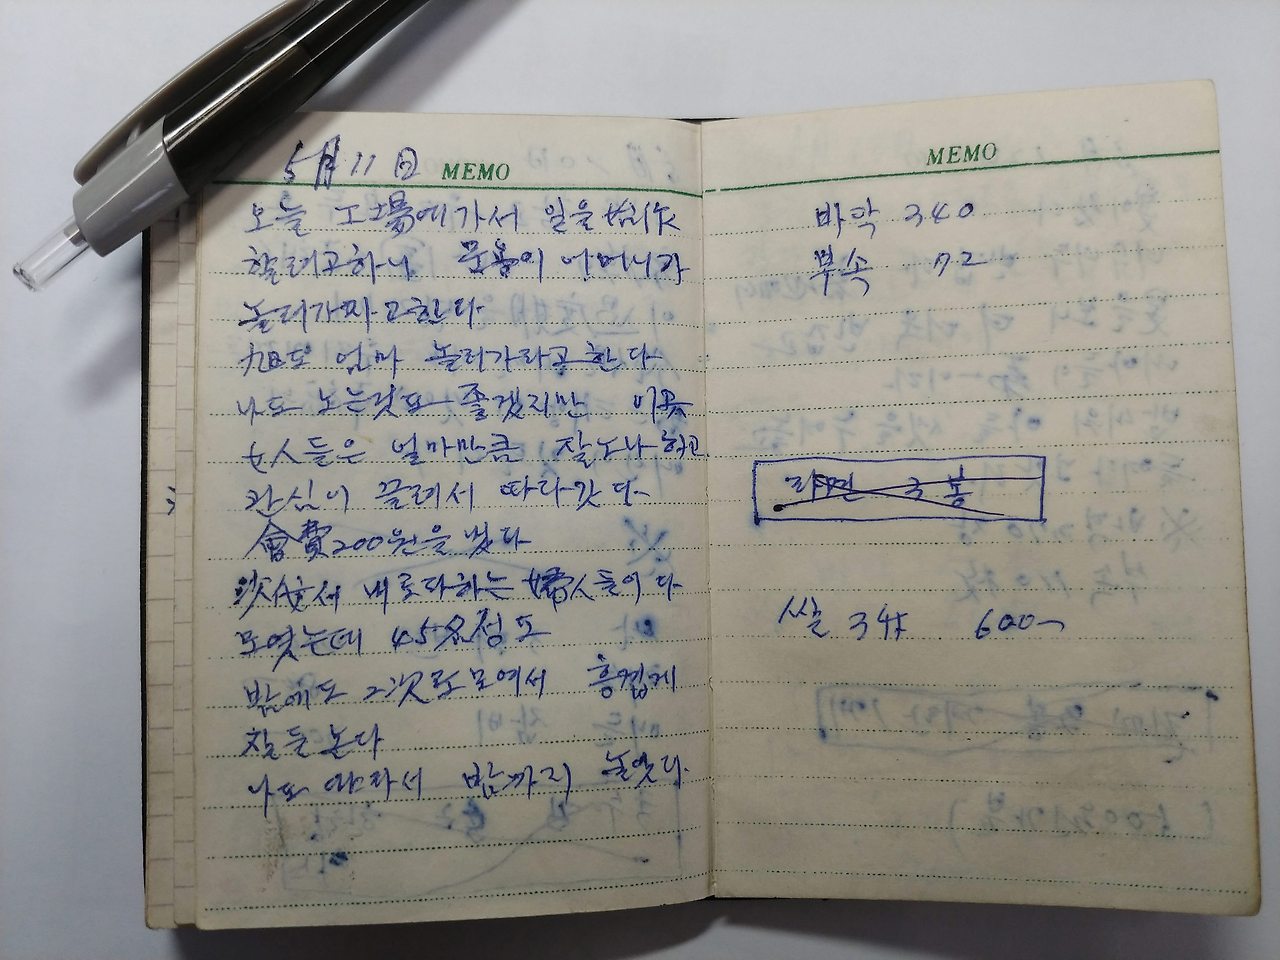 5月11日 MEMO
오늘 工場에가서 일을 始作
할려고하니 문용이 어머니가
놀러가자고한다
旭도 엄마 놀러가라고한다
나도 노는것도 좋겠지만 이곳
女人들은 얼마만큼 잘노나 하고
관심이 끌려서 따라갓다
會費200원을 냈다
배로다하는 婦人들이다
모엿는데 45名정도
밤에도 2次로 모여서 흥겹게
잘들 논다
나도 따라서 밤까지 놀앗다
MEMO
바악 340
부속 72
라면 3봉
쌀 3升 600